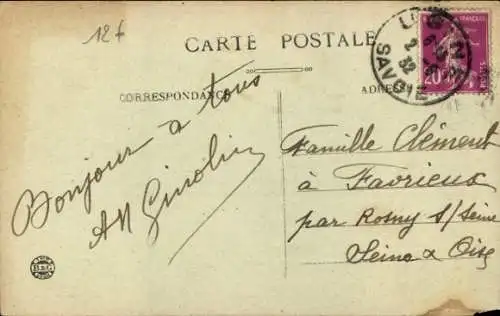 12f
CARTE POSTALE
CORRESPONDANCE
ADRESSE
SAVOIE
Bonjour à tous
Famille Clément
à Favrieux
par Rosny s/Seine
Seine & Oise